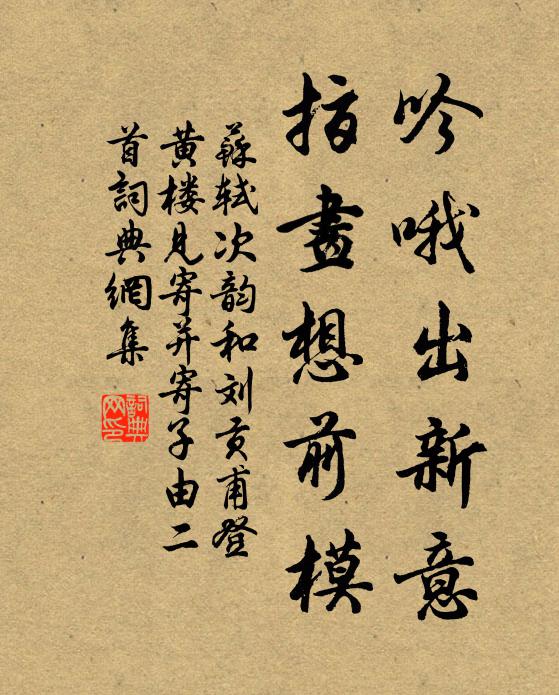 吟哦出新意
指畫想前模
蘇轼次韵和刘贡甫登
黄楼见寄并寄子由二
首詞典網集
詞典
网印